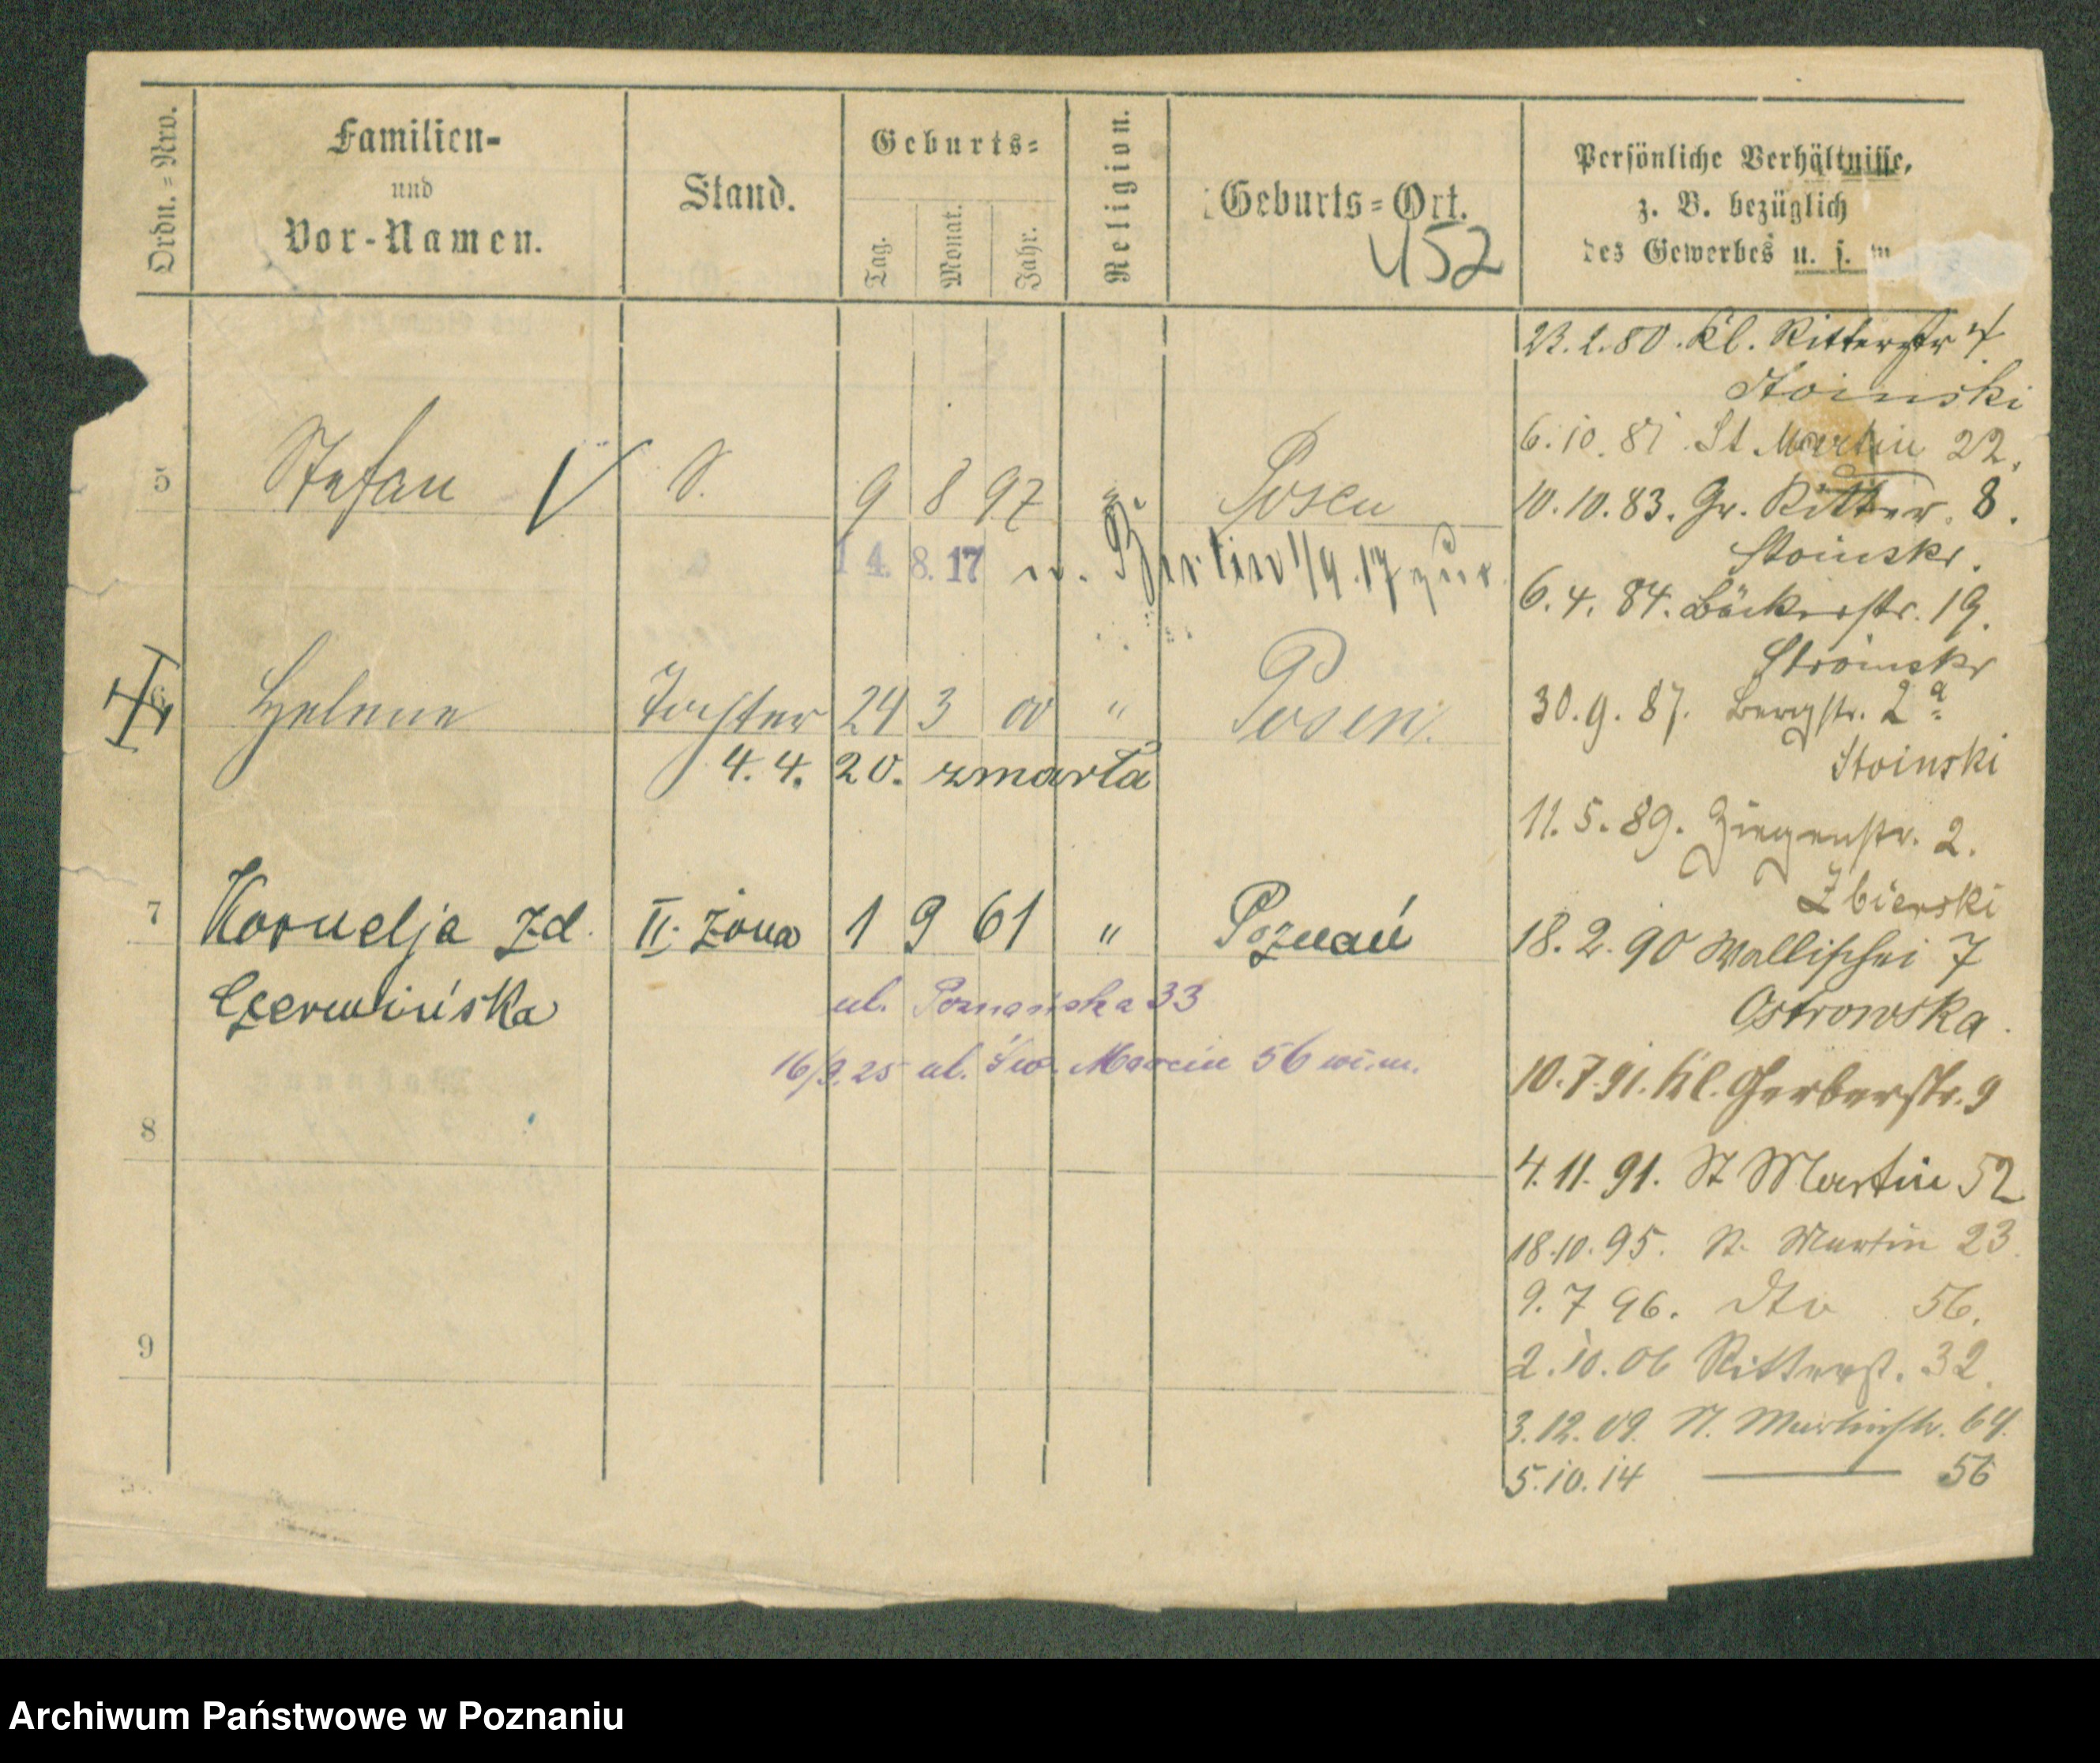 Ordn.=Nro.
Familien-
und
Vor-Namen.
Stand.
Geburts=
Tag.
Monat.
Jahr.
Religion.
Geburts=Ort.
452
Persönliche Verhältnisse,
z. B. bezüglich
des Gewerbes u. s. w
5 Stefan S. 9 8 97 Posen
14. 8. 17 n. Berlin 1/9.17 zur
6 Helene Tochter 24 3 00 " Posen.
4. 4. 20. zmarła
7 Kornelja zd. II. żona 1 9 61 " Poznań
Czerwińska
ul. Poznańska 33
16/9. 25 ul. Św. Marcin 56 wi.m.
8
9
23.2.80. Kl. Ritterstr 4.
Stoinski
6.10.81. St Martin 22.
10.10.83. Gr. Ritter. 8.
Stoinski.
6.4.84. Bäckerstr. 19.
Stroinski
30.9.87. Bergstr. 2a
Stoinski
11.5.89. Ziegenstr. 2.
Zbierski
18.2.90 Wallischei 7
Ostrowska.
10.7.91. Kl. Gerberstr. 9
4.11.91. St Martin 52
18.10.95. St. Martin 23.
9.7 96. dto 56.
2.10.06 Ritterst. 32.
3.12.09. St. Martinstr. 64.
5.10.14 — 56
Archiwum Państwowe w Poznaniu